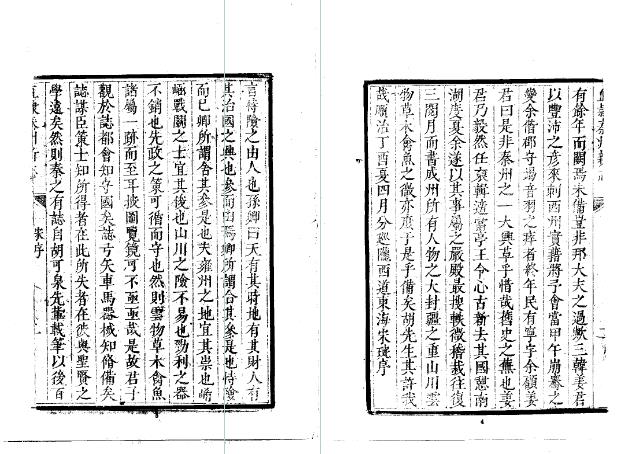 言恃險之由人也孫卿曰天有其時地有其財人有
其治國之興也參而由焉卿所謂合其參是也恃險
而已卿所謂舍其參是也夫雍州之地宜其崇也崤
嶇戰鬬之士宜其後也山川之險不易也勁利之器
不銷也先政之策可循而守也然則雲物草木禽魚
諸屬一跡而至耳披圖覽鏡可不亟亟哉是故君子
觀於誌都會知守國矣誌弓矢車馬器械知脩備矣
誌謀臣策士知所得者在此所失者在彼與聖賢之
學遠矣然則秦之有誌自胡可泉先輩載筆以後百
宋序
有餘年而闕焉未備豈非邦大夫之過歟三韓姜君
以豐沛之彥來刺西州實藉將予會當甲午崩騫之
變余偕郡守音羽之瘁者終年民有享宇余顧姜
君曰是非秦州之一大興革乎惜哉舊史之蕪也姜
君乃毅然任裒輯適亭王令心古新去其國憇南
湖度夏余遂以其事屬之嚴最搜軼微稽裁往復
三閱月而書成州所有人物之大封疆之重山川雲
物草木禽魚之微亦庶于是乎備矣胡先生其許我
哉順治丁酉夏四月分巡隴西道東海宋琬序